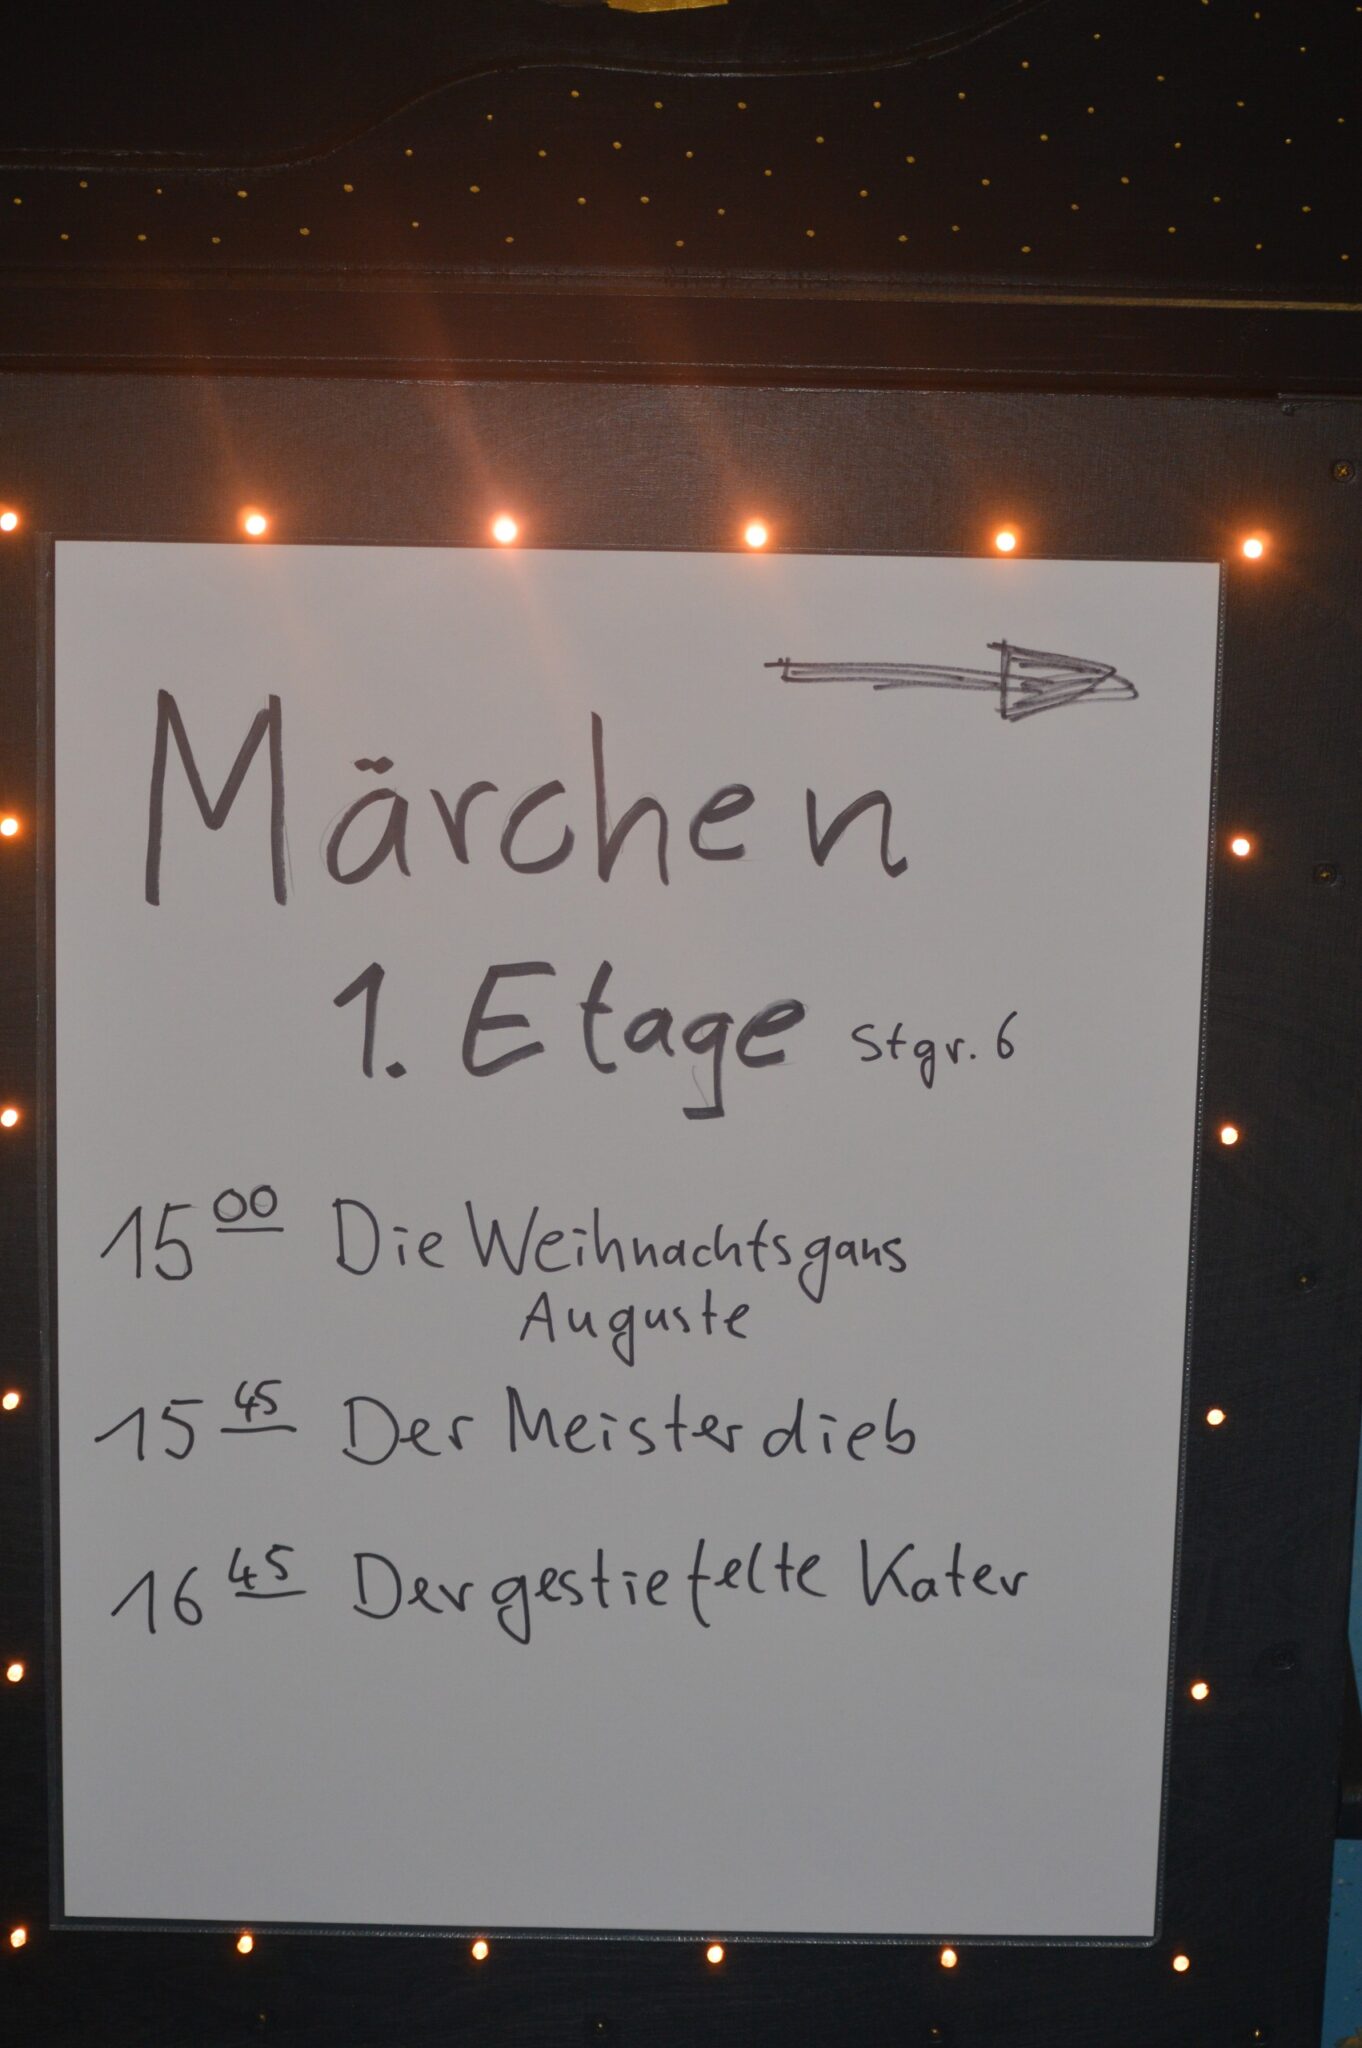 Märchen
1. Etage Stgr. 6
15 00 Die Weihnachtsgans
Auguste
15 45 Der Meisterdieb
16 45 Der gestiefelte Kater